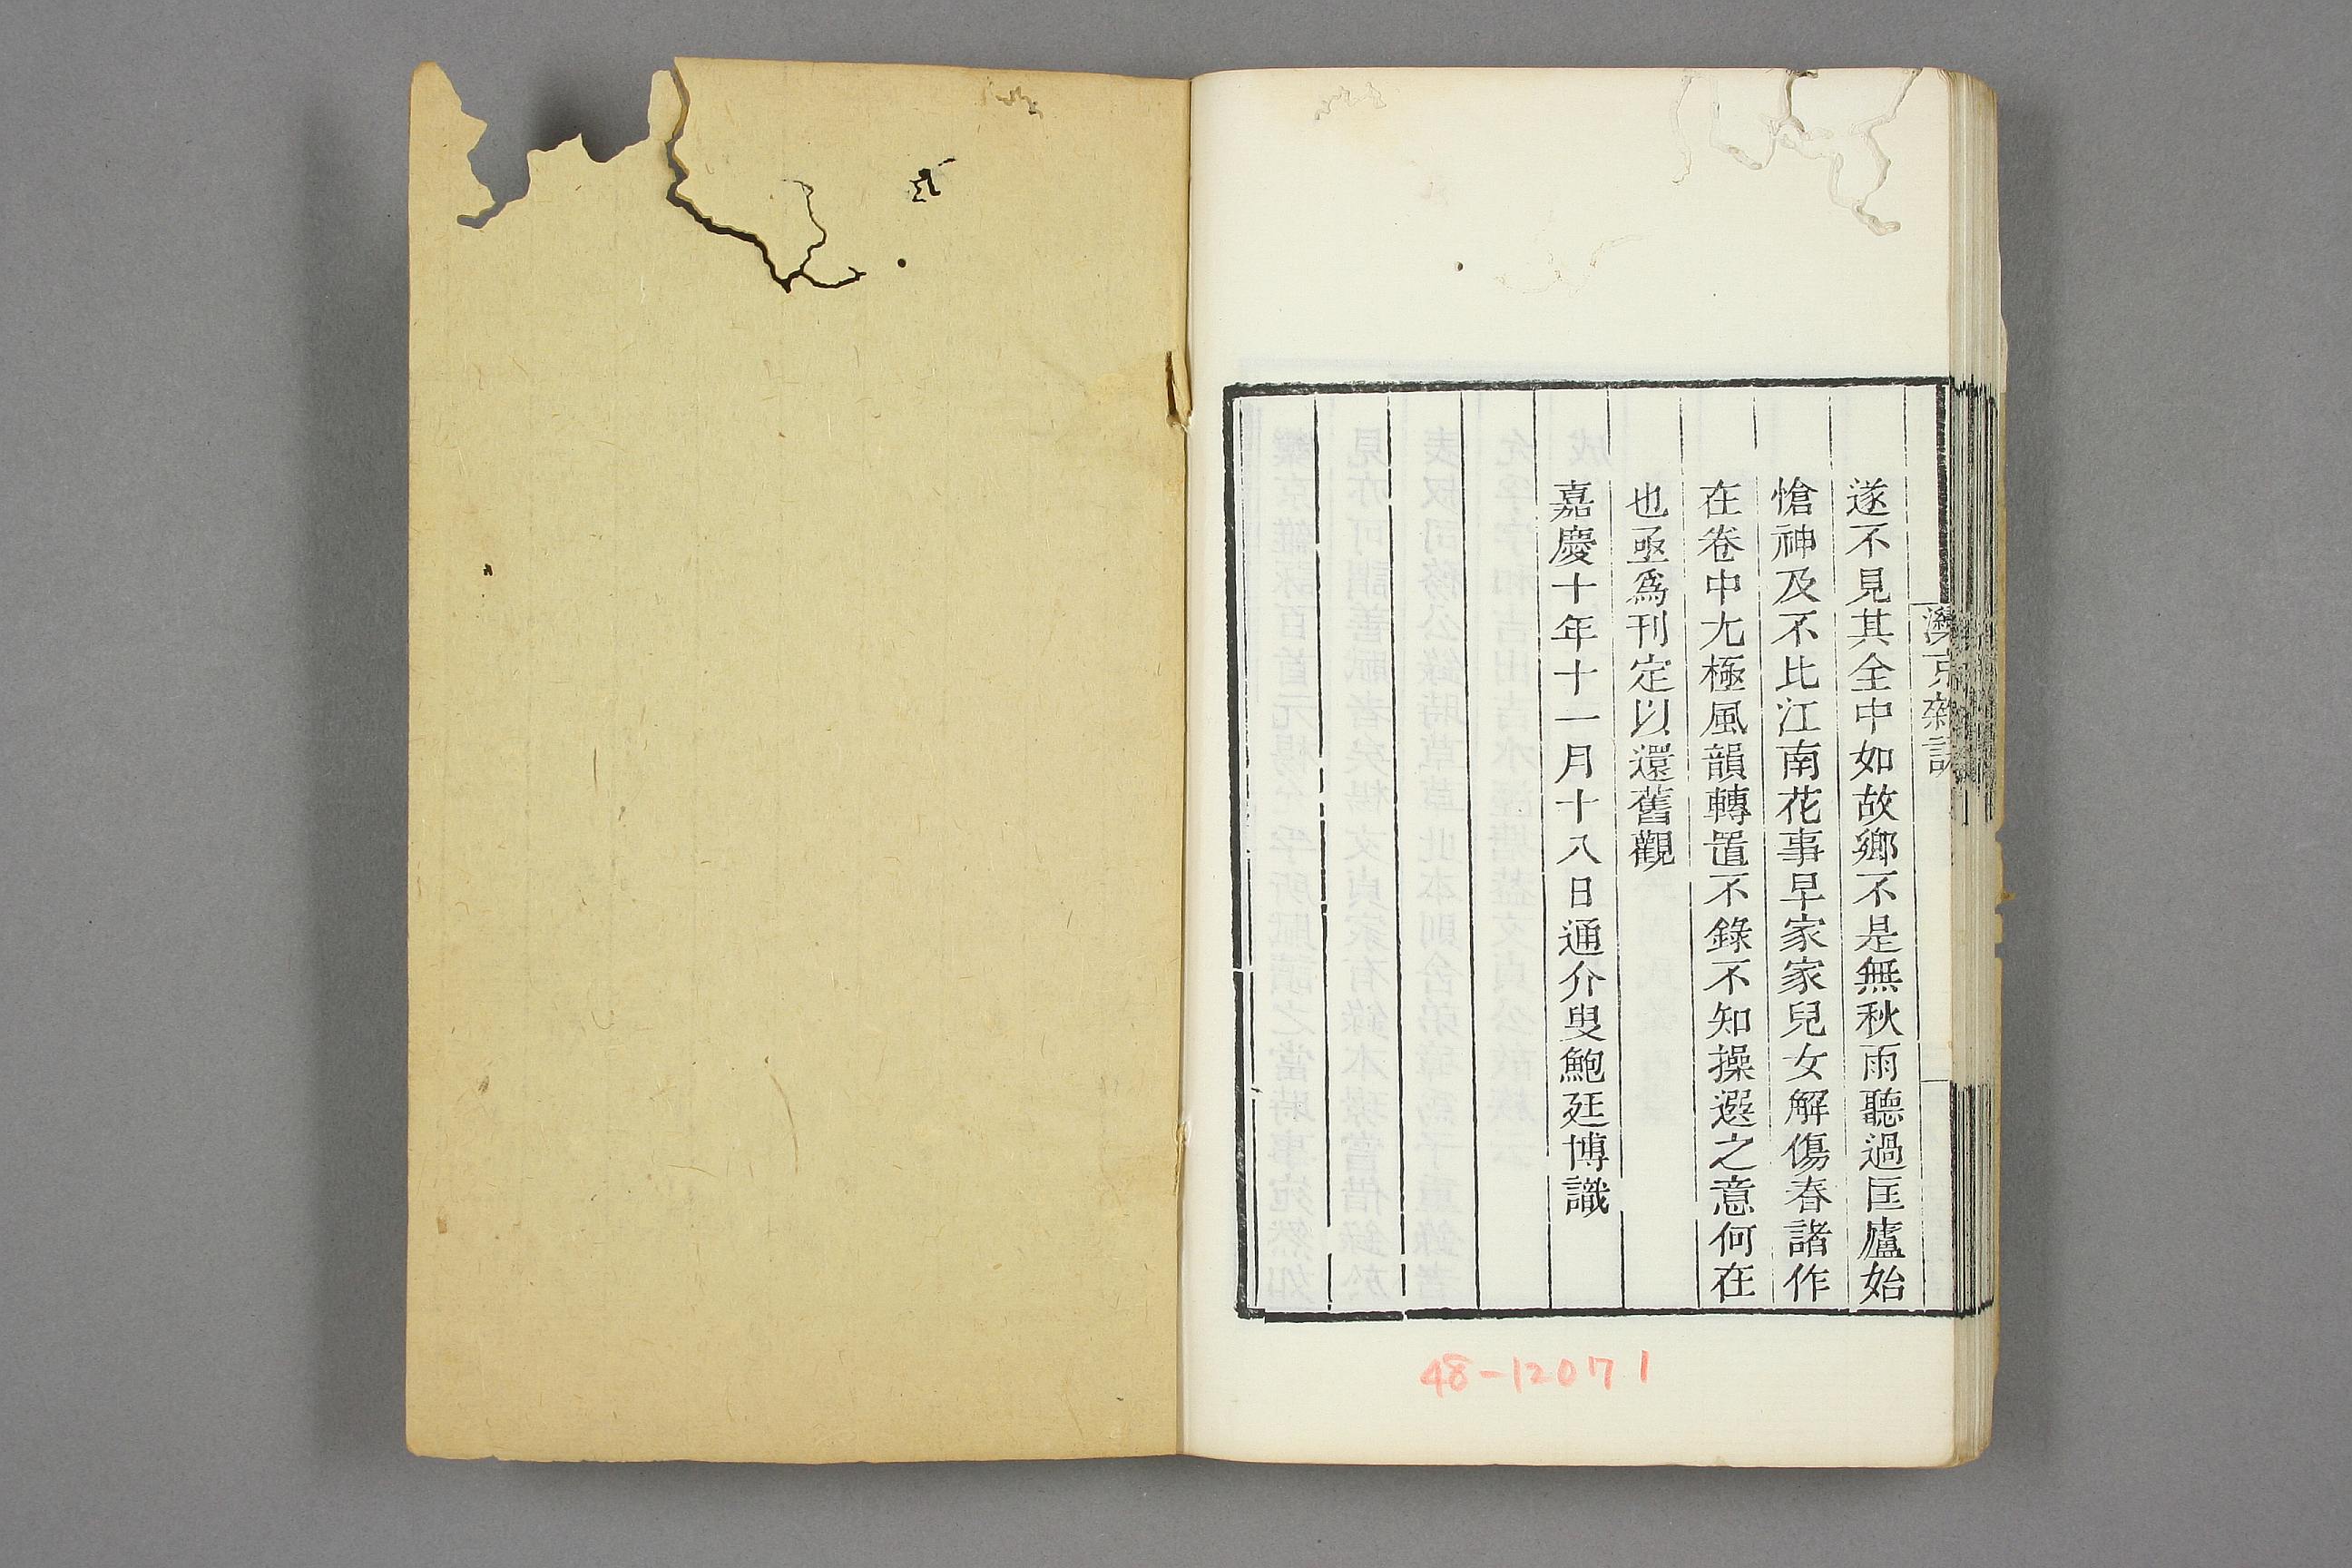 灤京雜詠
遂不見其全中如故鄉不是無秋雨聽過匡廬始
愴神及不比江南花事早家家兒女解傷春諸作
在卷中尢極風韻轉置不錄不知操選之意何在
也亟爲刊定以還舊觀
嘉慶十年十一月十八日通介叟鮑廷博識
48-12071